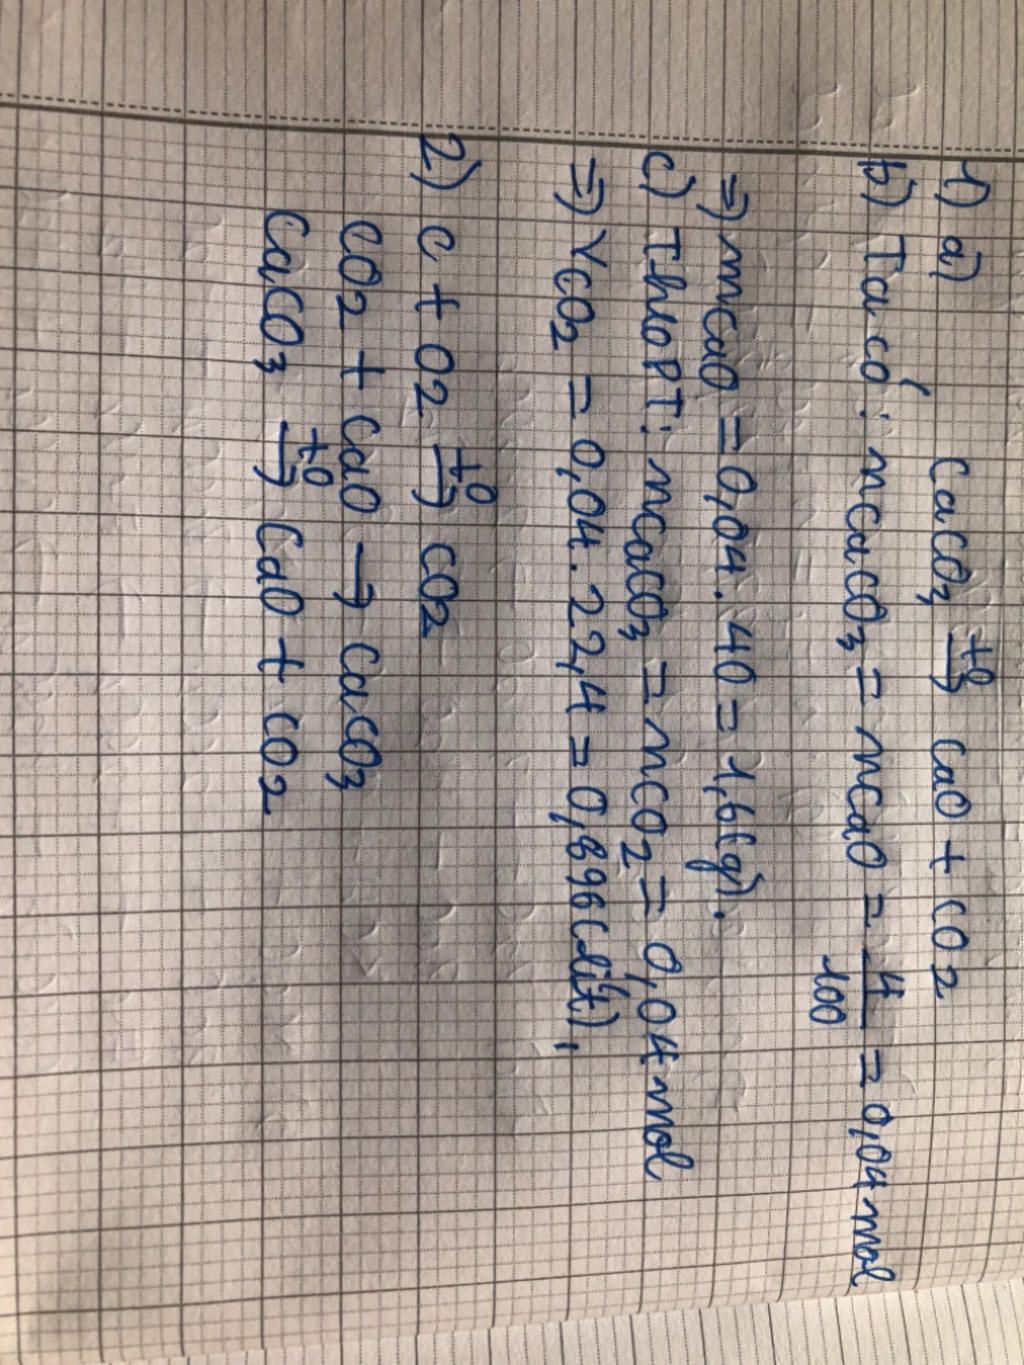 1) a) CaCO3 to→ CaO + CO2
b) Ta có: nCaCO3 = nCaO = 4/100 = 0,04 mol
=> mCaO = 0,04. 40 = 1,6 (g).
c) Theo PT: nCaCO3 = nCO2 = 0,04 mol
=> VCO2 = 0,04. 22,4 = 0,896 (lít),
2) C + O2 to→ CO2
CO2 + CaO → CaCO3
CaCO3 to→ CaO + CO2